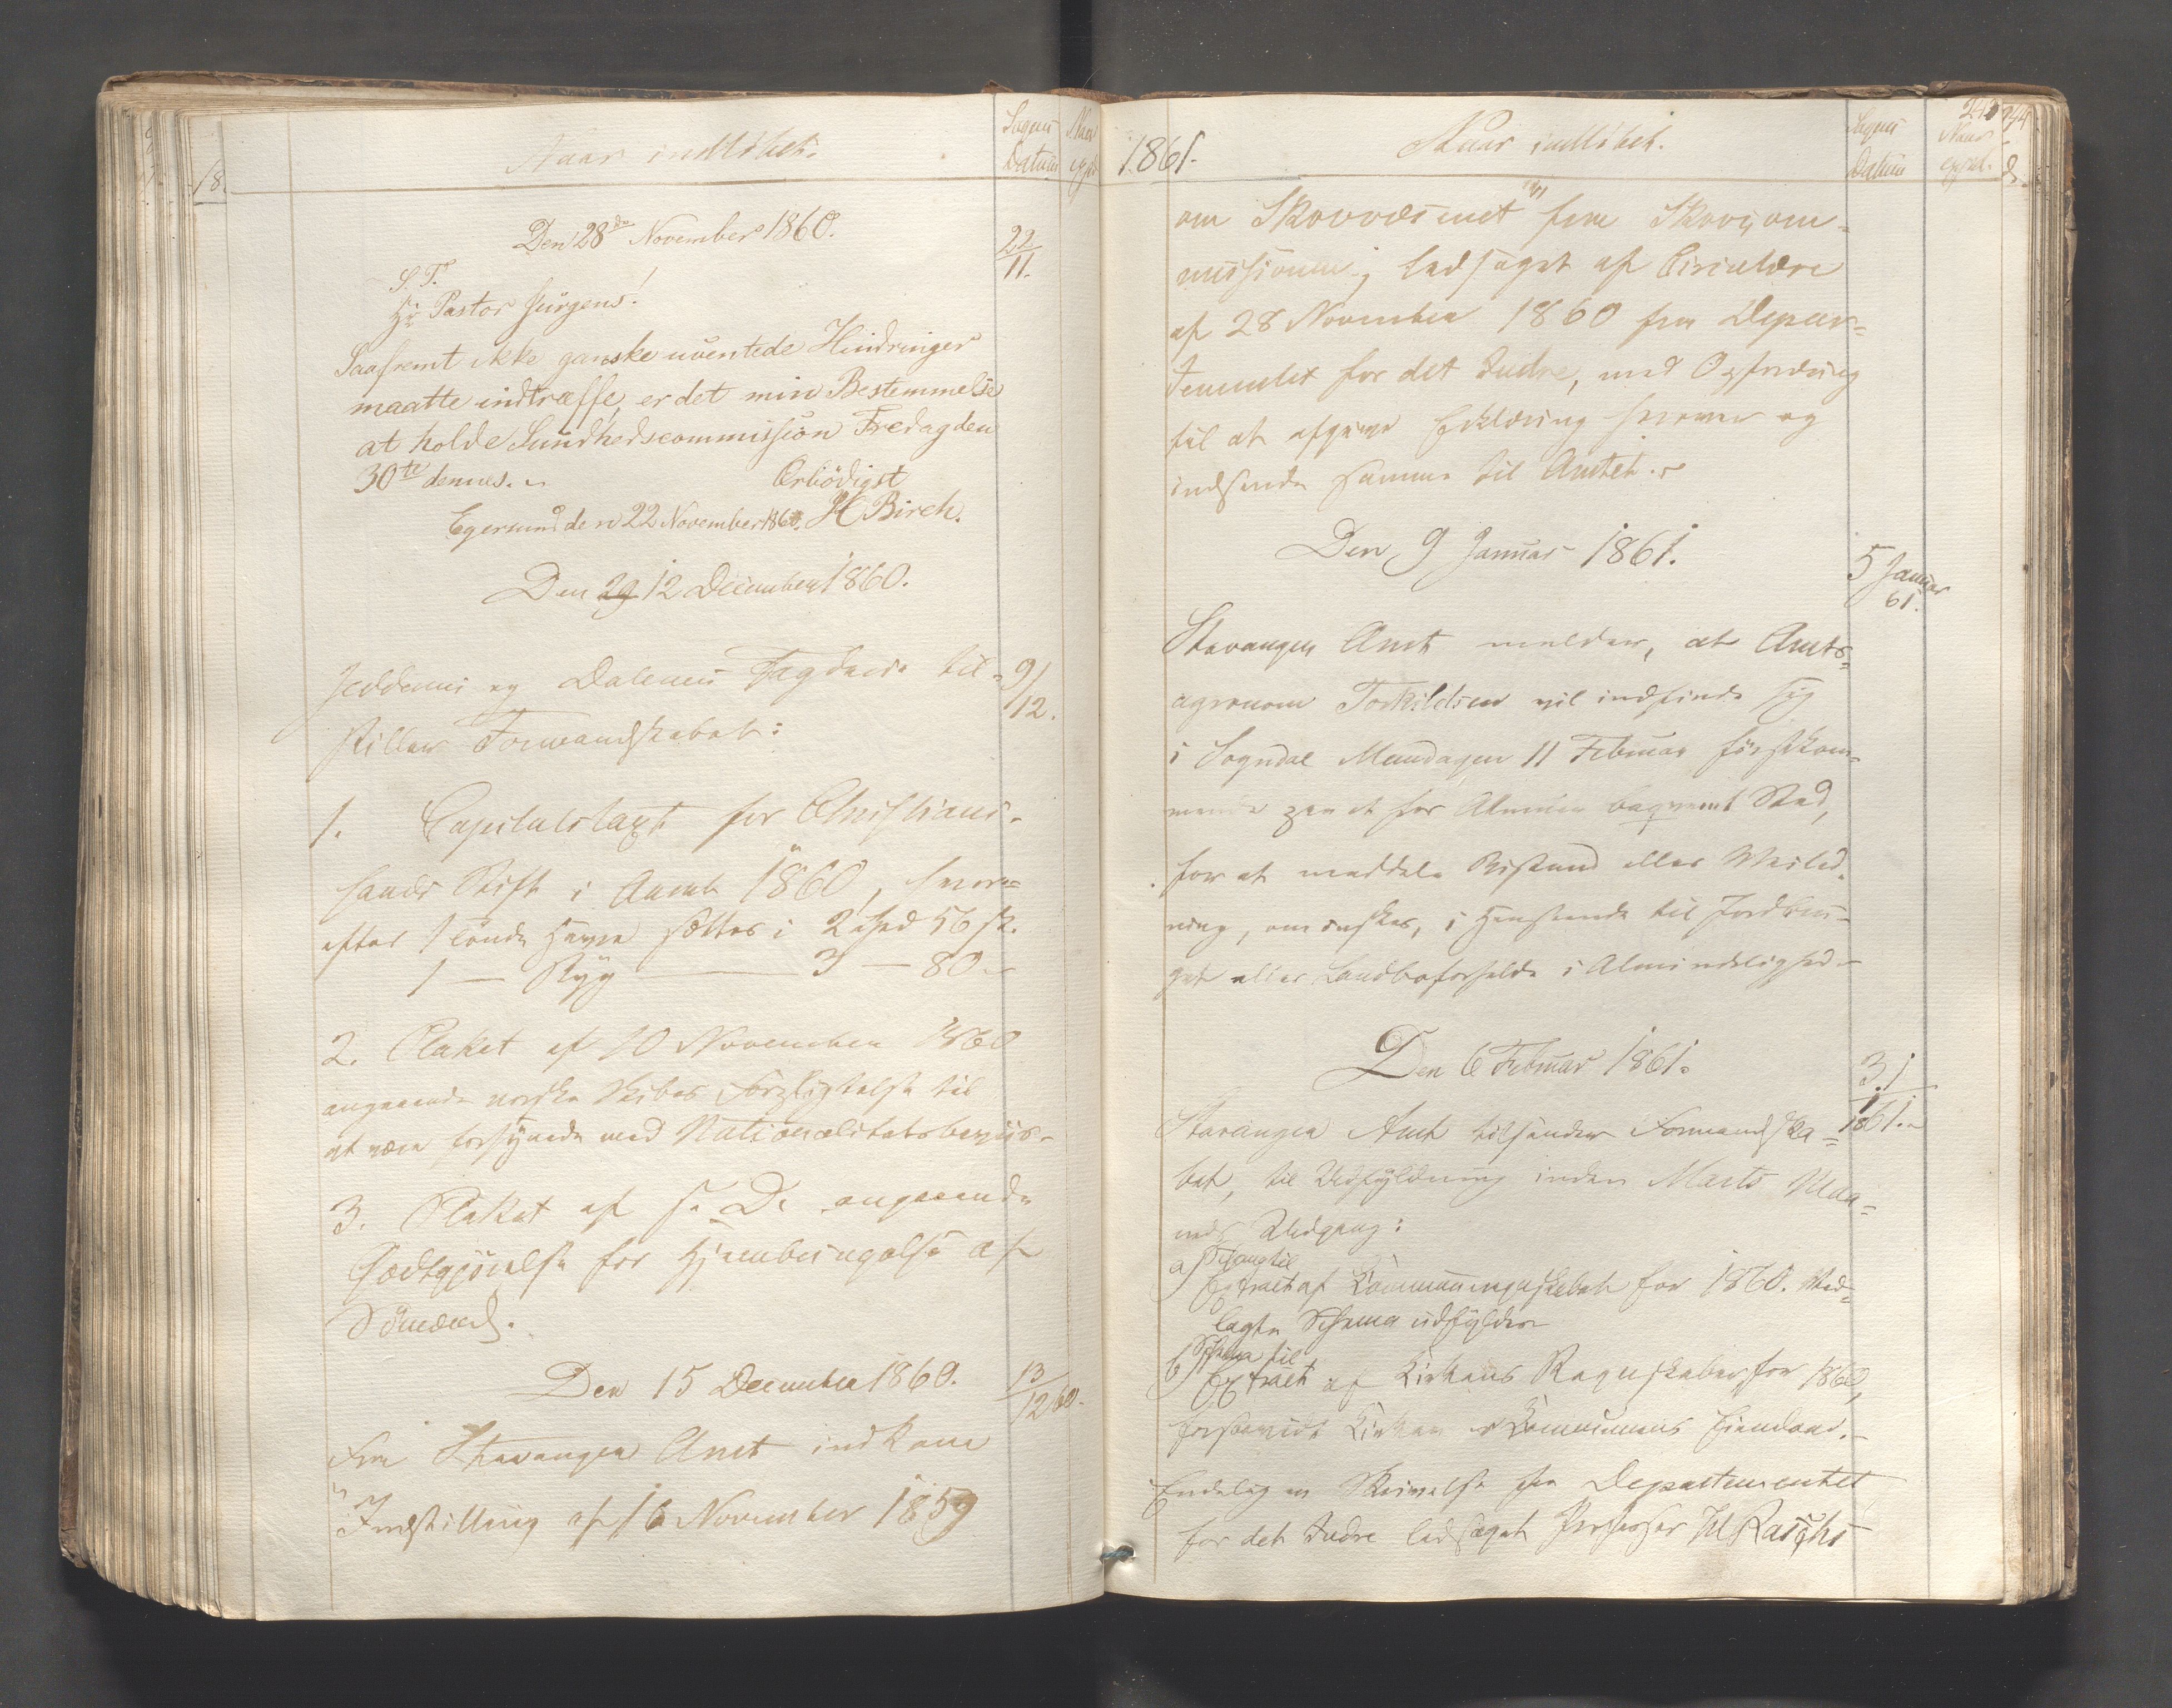 18.
Naar indløbet.
Sagens Datum
Naar exped.
Den 28de November 1860.
22/11.
S. T.
Hr Pastor Jürgens!
Saafremt ikke ganske uventede Hindringer
maatte indtræffe, er det min Bestemmelse
at holde Sundhedscommission Fredag den
30te dennes.
Ærbödigst
Egersund den 22 November 1860. H Birch.
Den 29 12 December 1860.
Jedderens og Dalenes Fogderie til-
9/12.
stiller Formandskabet:
1. Capitelstaxt for Christian-
sands Stift i Aaret 1860, hvor-
efter 1 Tønde Havre sættes i 2 Spd 56 sk.
1 — Byg — 3 — 80
2. Plakat af 10 November 1860
angaaende norske Skibes Forpligtelse til
at være forsynede med Nationalitetsbeviis.
3. Plakat af s. D. angaaende
Godtgjørelse for Hjembringelse af
Sömænd.
Den 15 December 1860.
13/12 60.
Fra Stavanger Amt indkom
"Indstilling af 16 November 1859
1861.
Naar indløbet.
Sagens Datum
Naar exped.
om Skovvæsenet" fra Skovcom-
missionen, ledsaget af Circulære
af 28 November 1860 fra Depar-
tementet for det Indre, med Opfordring
til at afgive Erklæring herover og
indsende samme til Amtet.
Den 9 Januar 1861.
5 Januar 61.
Stavanger Amt melder, at Amts-
agronom Torkildsen vil indfinde sig
i Sogndal Mandagen 11 Februar förstkom-
mende paa et for Almuen beqvemt Sted,
for at meddele Bistand eller Veiled-
ning, om ønskes, i Henseende til Jordbru-
get eller Landboforholde i Almindelighed
Den 6 Februar 1861.
31/1 1861.
Stavanger Amt tilsender Formandska-
bet, til Udfyldning inden Marts Maa-
neds Udgang:
a) Schema til
Extract af Communeregnskabet for 1860. Ved-
lagte Schema udfyldes
b) Schema til
Extract af Kirkens Regnskaber for 1860,
forsaavidt Kirken er Communens Eiendom.
Endelig en Skrivelse fra Departementet
for det Indre ledsaget Professor H Raschs